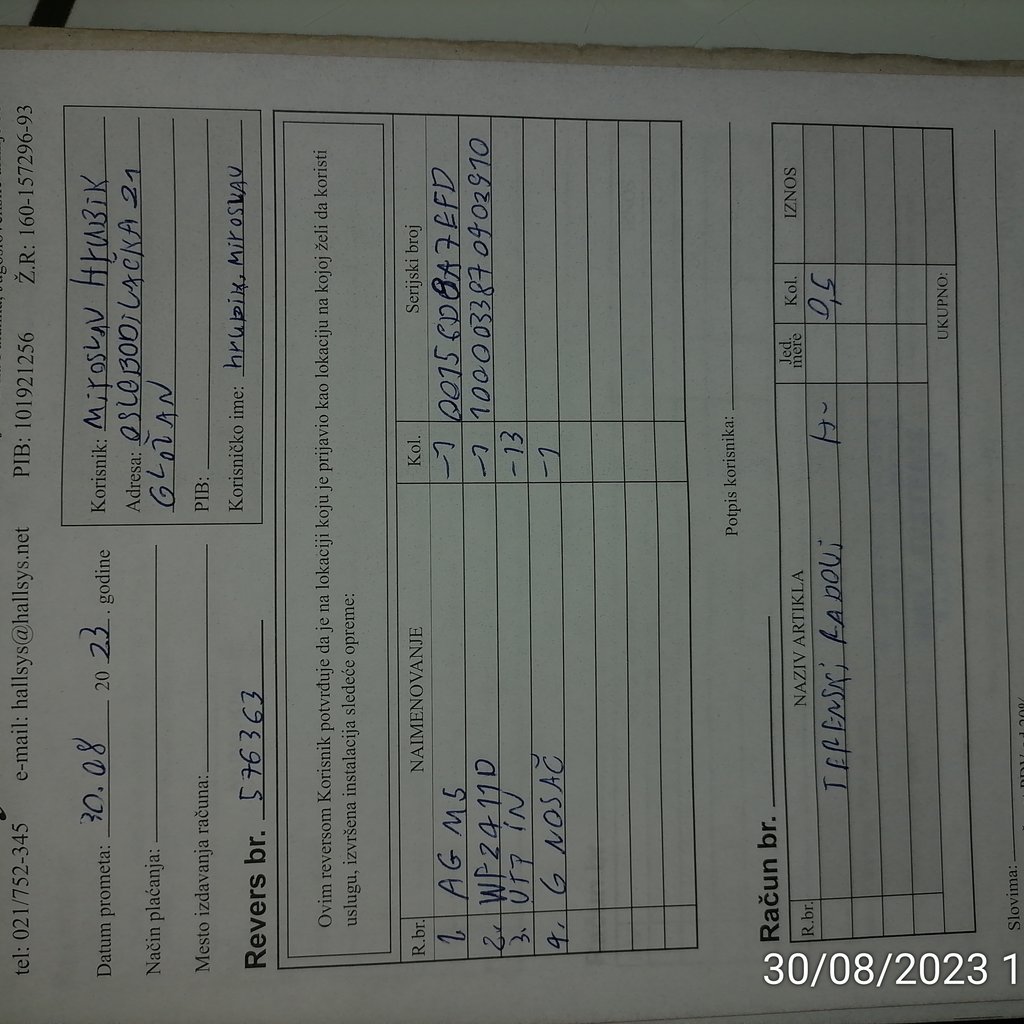 tel: 021/752-345 e-mail: hallsys@hallsys.net PIB: 101921256 Ž.R: 160-157296-93
Datum prometa: 30.08 2023. godine
Način plaćanja:
Mesto izdavanja računa:
Korisnik: Miroslav Hrubik
Adresa: OSLOBODiLAČKA 21
GLOŽAN
PIB:
Korisničko ime: hrubik.miroslav
Revers br. 576363
Ovim reversom Korisnik potvrđuje da je na lokaciji koju je prijavio kao lokaciju na kojoj želi da koristi
uslugu, izvršena instalacija sledeće opreme:
R.br. NAIMENOVANJE Kol. Serijski broj
1. AG M5 -1 00156DBA7EFD
2. WP2411D -1 1000033870402910
3. UTP iN -13
4. G NOSAČ -1
Potpis korisnika:
Račun br.
R.br. NAZIV ARTIKLA Jed. mere Kol. IZNOS
TERENSKi RADOVi H~ 0,5
UKUPNO:
Slovima:
30/08/2023 1